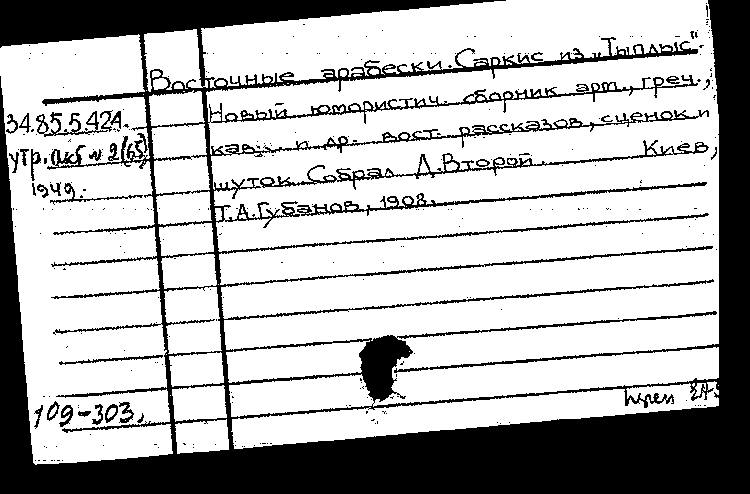 Восточные арабески. Саркис из „Тыплыс".
34.85.5.424. Новый юмористич. сборник арт., греч.,
утр. акт № 2(65) кавк. и др. вост. рассказов, сценок и
1949. шуток Собрал Д. Второй Киев,
Т.А.Губанов, 1908.
109-303.